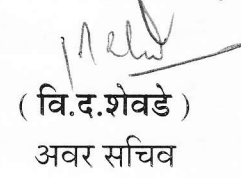 ( वि.द.शेवडे )
अवर सचिव